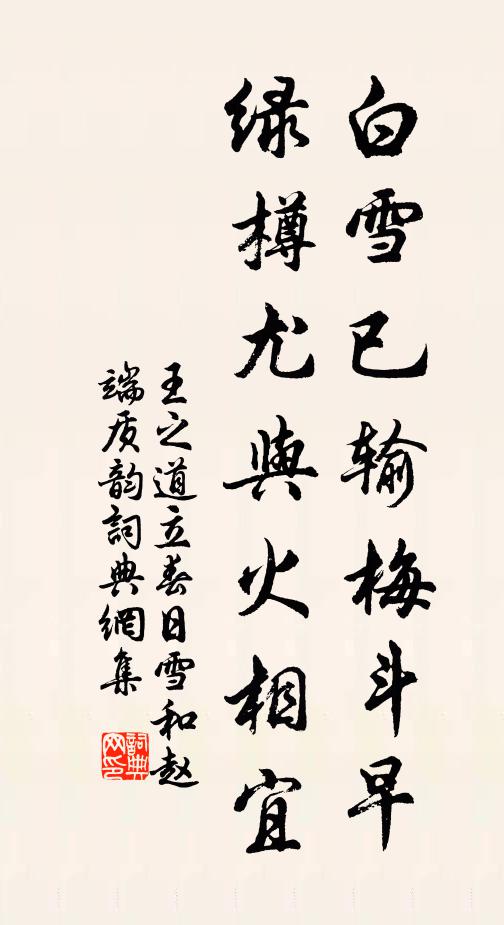 白雪已输梅斗早
绿樽尤與火相宜
王之道立春日雪和赵
端质韵詞典網集
詞典网印